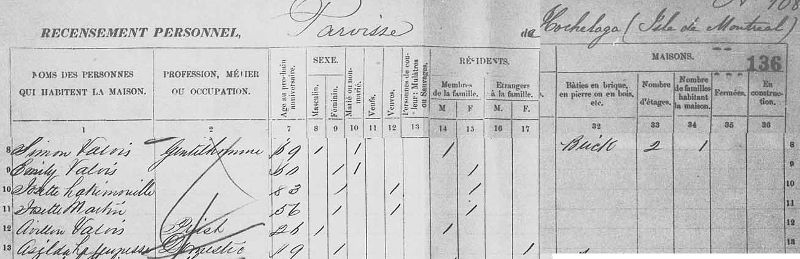 No 108
RECENSEMENT PERSONNEL, Parvisse de Hochelaga (Isle de Montreal)
136
NOMS DES PERSONNES QUI HABITENT LA MAISON.
PROFESSION, MÉTIER OU OCCUPATION.
Age au prochain anniversaire.
SEXE.
Masculin.
Féminin.
Marié ou non-marié.
Veufs.
Veuves.
Personnes de couleur: Mulâtres ou Sauvages.
RÉSIDENTS.
Membres de la famille.
Etrangers à la famille.
M F M F
MAISONS.
Bâties en brique, en pierre ou en bois, etc.
Nombre d'étages.
Nombre de familles habitant la maison.
Fermées.
En construction.
1 2 7 8 9 10 11 12 13 14 15 16 17 32 33 34 35 36
8 Simon Valois Gentilhomme 69 1 1 1 Brick 2 1 8
9 Emily Valois 1 1 1 9
10 Josette 53 1 1 1 10
11 Josette Martin 56 1 1 1 11
12 Valois 26 1 1 12
13 Domestic 19 1 1 13